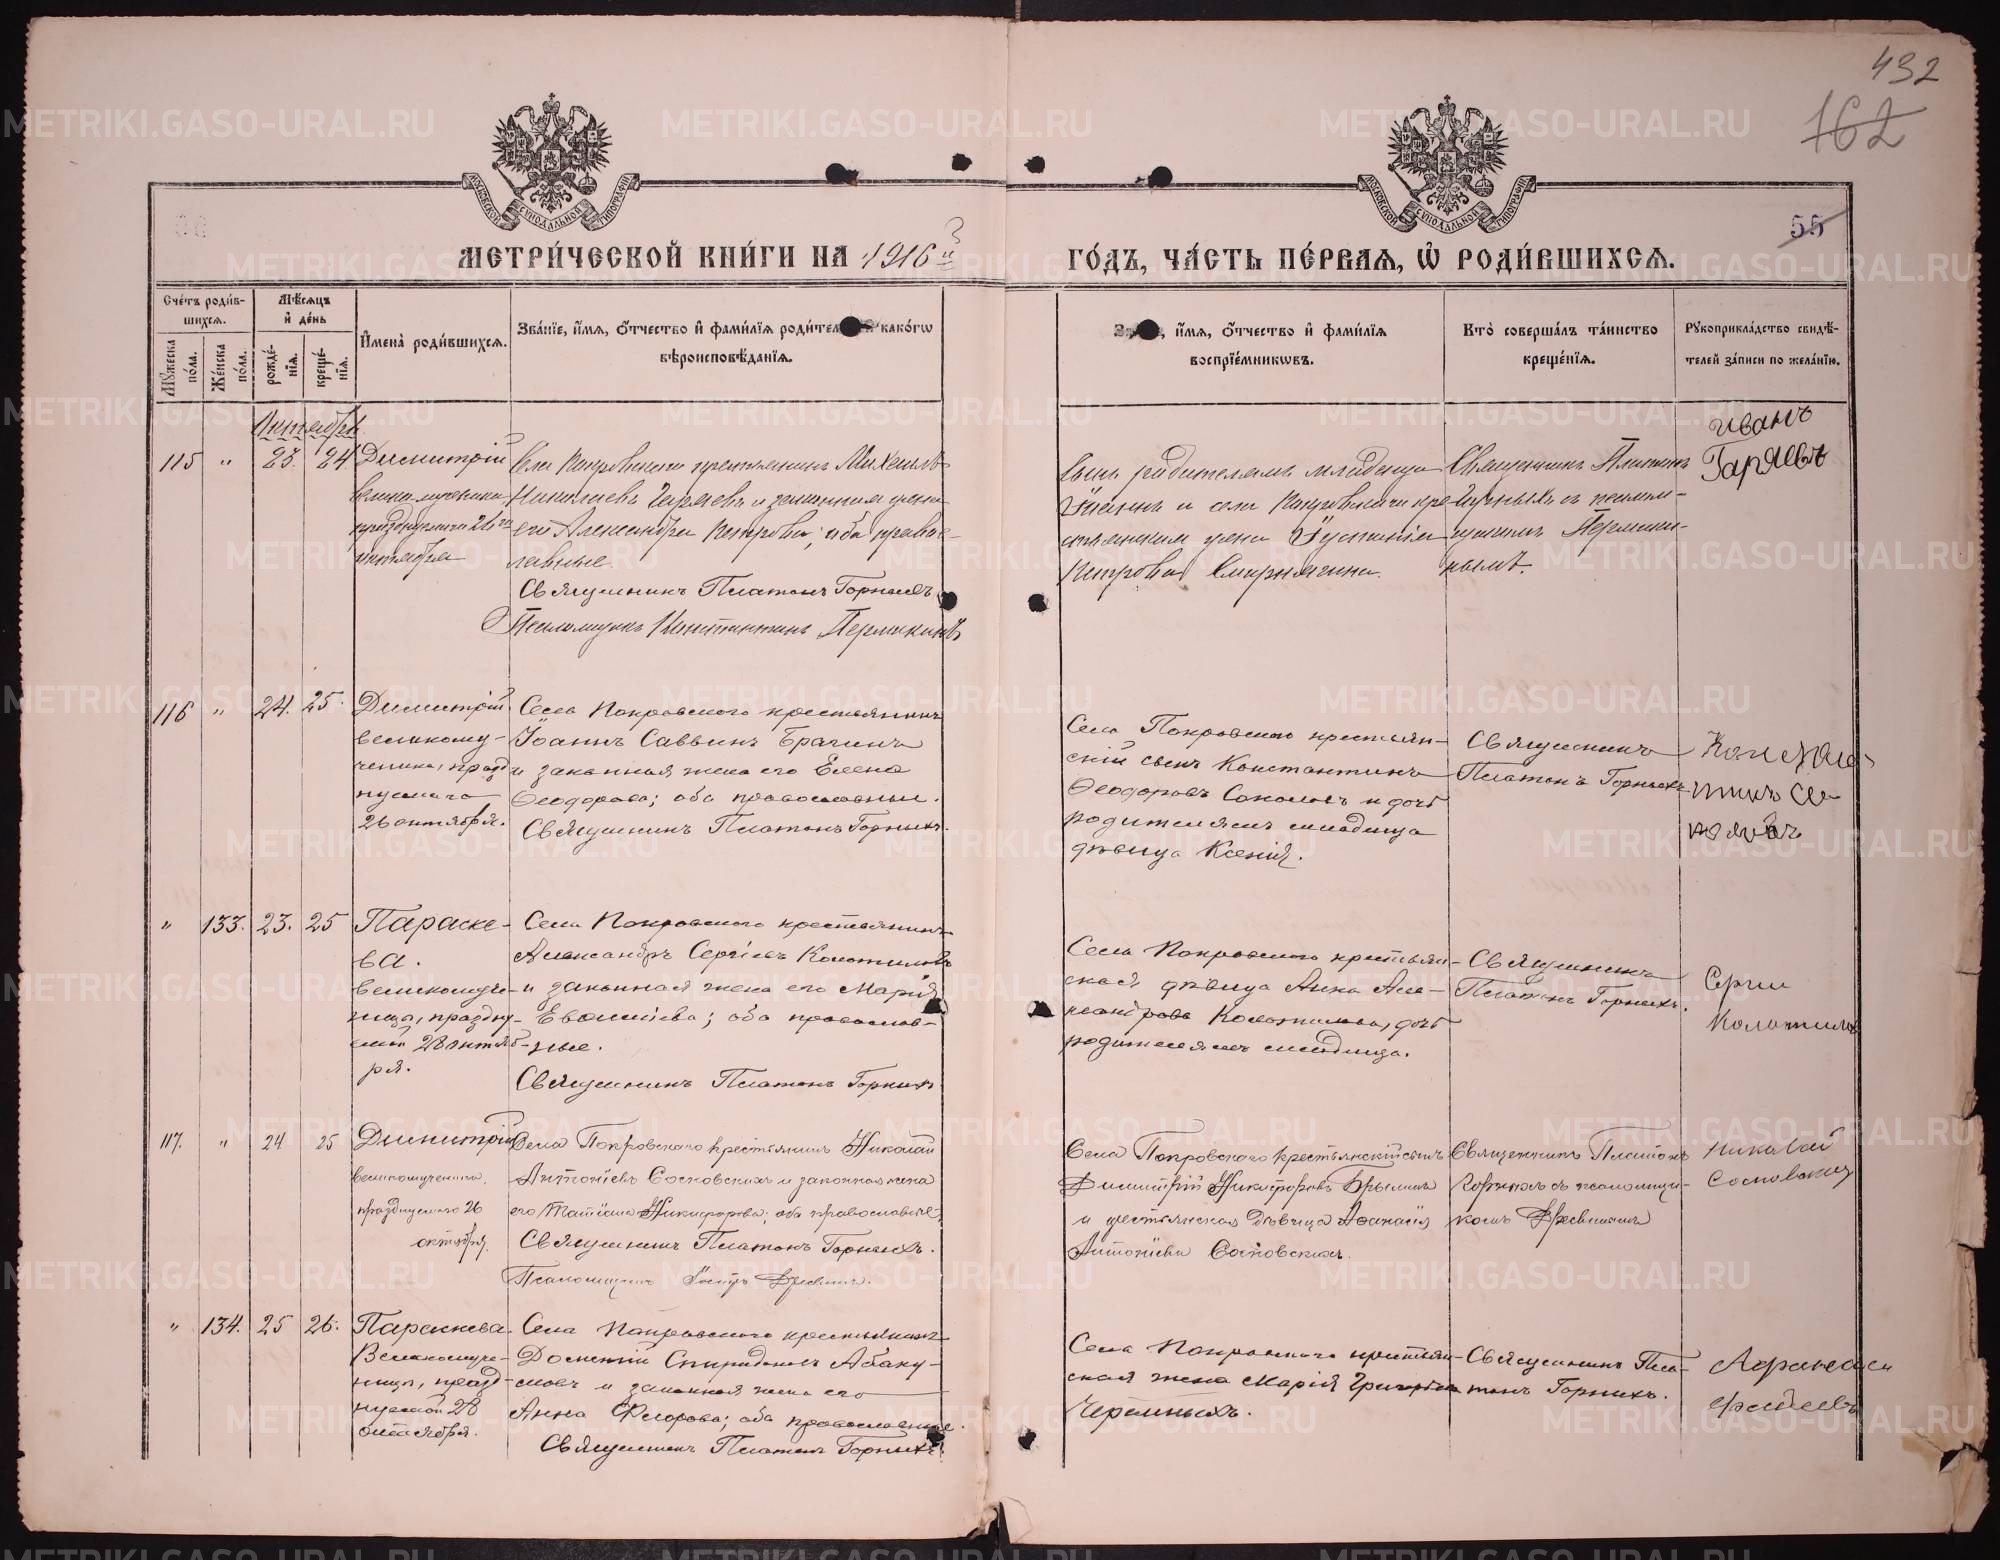 432
162
55
МОСКОВСКОЙ СѴНОДАЛЬНОЙ ТИПОГРАФІИ
МОСКОВСКОЙ СѴНОДАЛЬНОЙ ТИПОГРАФІИ
МЕТРИ́ЧЕСКОЙ КНИ́ГИ НА 1916й
ГО́ДЪ, ЧА́СТЬ ПЕ́РВАѦ, Ѡ҆ РОДИ́ВШИХСѦ.
Сче́тъ роди́в-
шихсѧ.
Мѣ́сѧцъ
и҆ де́нь
Мꙋ́жеска по́ла.
Же́нска по́ла.
рожде́-
нїѧ.
креще́-
нїѧ.
И҆мена̀ роди́вшихсѧ.
Зва́нїе, и҆́мѧ, ѻ҆́тчество и҆ фами́лїѧ родител како́гѡ
вѣроисповѣ́данїѧ.
и҆́мѧ, ѻ҆́тчество и҆ фами́лїѧ
воспрїе́мникѡвъ.
Кто̀ соверша́лъ та́инство
креще́нїѧ.
Рꙋкоприкла́дство свидѣ́-
телей за́писи по жела́нїю.
Октября
115 " 23. 24 Димитрій
великомученика
празднуемаго 26го
октября
Села Покровскаго крестьянинъ Михаилъ
Николаевъ Гаряевъ и законная жена
его Александра Петрова; оба православ-
лавные.
Священникъ Платонъ Горныхъ
Псаломщикъ Константинъ Пермикинъ
Сынъ родителямъ младенца
Іоаннъ и села Покровскаго кре-
стьянская жена Іустинія
Петрова Смирнягина.
Священникъ Платонъ
Горныхъ съ псалом-
щикомъ Пермики-
нымъ.
Иванъ
Гаряевъ
116 " 24. 25. Димитрій
великому-
ченика, празд
нуемаго
26 октября.
Села Покровскаго крестьянинъ
Іоаннъ Саввинъ Брагинъ
и законная жена его Елена
Ѳеодорова; оба православные.
Священникъ Платонъ Горныхъ.
Села Покровскаго крестьян-
скій сынъ Константинъ
Ѳеодоровъ Соколовъ и дочь
родителямъ младенца
дѣвица Ксенія.
Священникъ
Платонъ Горныхъ
" 133. 23. 25 Параске-
ва.
великомуче-
ница, праздну-
емой 28 октяб-
ря.
Села Покровскаго крестьянинъ
Александръ Сергіевъ Колотиловъ
и законная жена его Марія
Евфиміева; оба православ-
ные.
Священникъ Платонъ Горныхъ
Села Покровскаго крестьян-
ская дѣвица Анна Але-
ксандрова Колотилова, дочь
родителямъ младенца.
Священникъ
Платонъ Горныхъ.
Сергий
Колотилов
117. " 24 25 Димитрій
великомученика,
празднуемаго 26
октября.
Села Покровскаго крестьянинъ Николай
Антоніевъ Сосновскихъ и законная жена
его Татіана Никифорова; оба православные.
Священникъ Платонъ Горныхъ.
Псаломщикъ
Села Покровскаго крестьянскій сынъ
Димитрій Никифоровъ Брылинъ
и крестьянская дѣвица Аѳанасія
Антоніева Сосновскихъ.
Священникъ Платонъ
Горныхъ съ псаломщи-
комъ
Николай
Сосновских
" 134. 25 26. Параскева.
Великомуче-
ница, празд-
нуемой 28
октября.
Села Покровскаго крестьянинъ
Дометій Спиридоновъ Абаку-
мовъ и законная жена его
Анна Флорова; оба православные.
Священникъ Платонъ Горныхъ.
Села Покровскаго крестьян-
ская жена Марія Григорьева
Черемныхъ.
Священникъ Пла-
тонъ Горныхъ.
METRIKI.GASO-URAL.RU